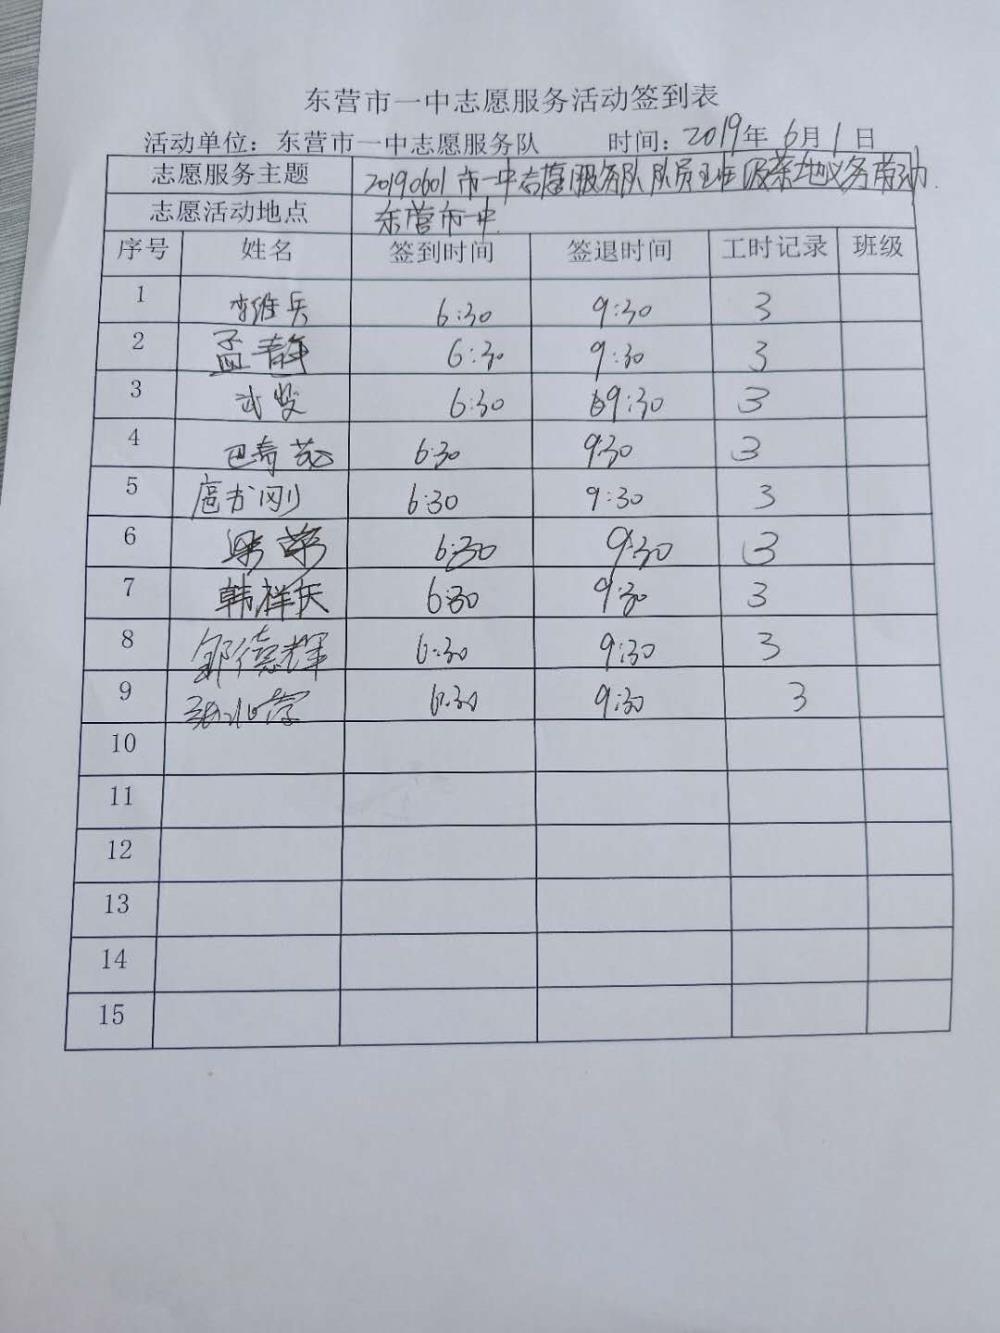 东营市一中志愿服务活动签到表
活动单位：东营市一中志愿服务队 时间：2019年6月1日
志愿服务主题 20190601市一中志愿服务队队员在班菠菜地义务劳动
志愿活动地点 东营市一中
序号 姓名 签到时间 签退时间 工时记录 班级
1 李维兵 6:30 9:30 3
2 孟静 6:30 9:30 3
3 武 6:30 9:30 3
4 巴寿 6:30 9:30 3
5 书刚 6:30 9:30 3
6 6:30 9:30 3
7 韩祥庆 6:30 9:30 3
8 邹德辉 6:30 9:30 3
9 6:30 9:30 3
10
11
12
13
14
15